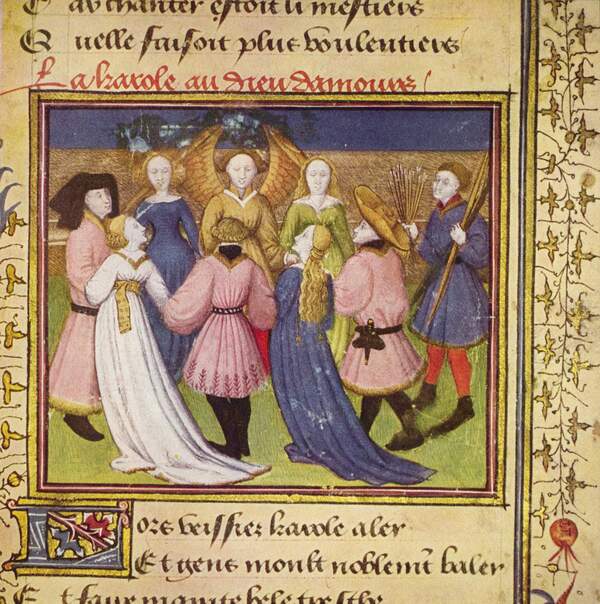 au chanter estoit li mestiers
Quelle faisoit plus voulentiers
La karole au dieu damours
Lors veissiez karole aler
Et gens moult noblemt baler
Et faire mainte bele tresche